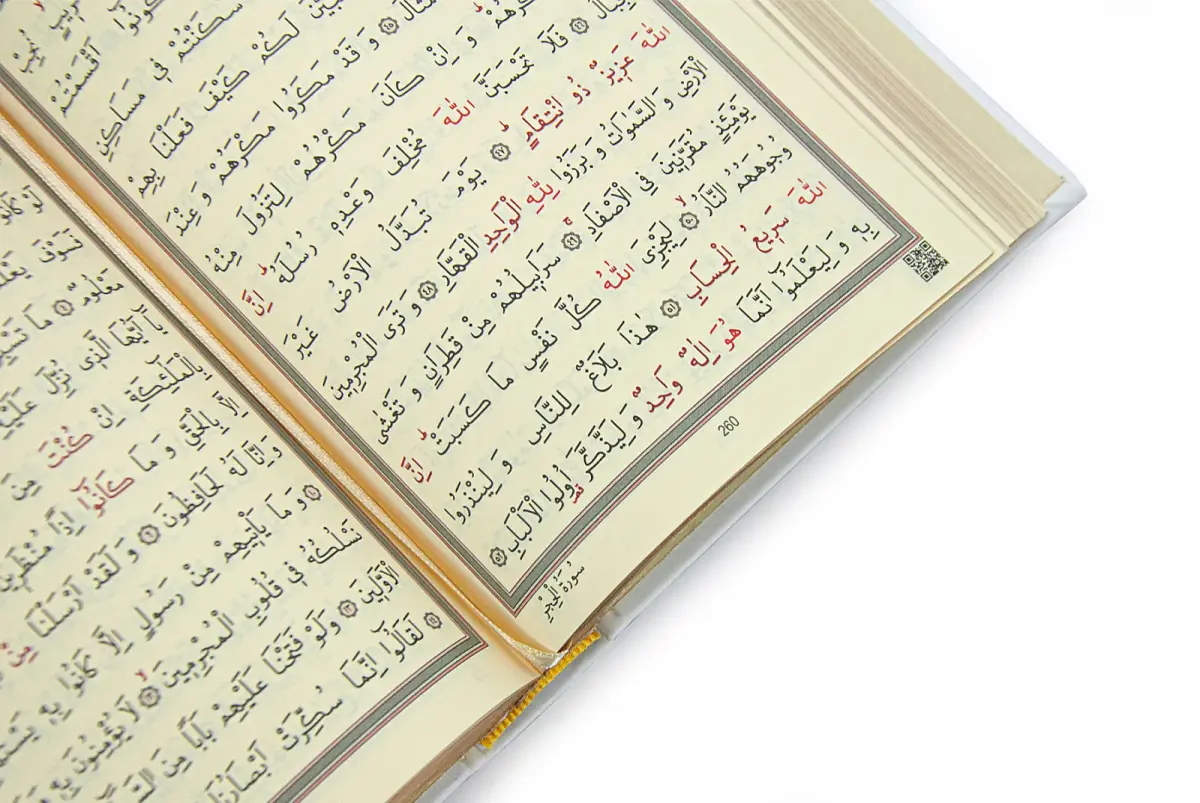 اَقْسَمْتُمْ
سَكَنْتُمْ فِي مَسَاكِنِ
لَكُمْ كَيْفَ فَعَلْنَا بِهِمْ
٤٥ وَقَدْ مَكَرُوا مَكْرَهُمْ وَعِنْدَ
وَاِنْ كَانَ مَكْرُهُمْ لِتَزُولَ مِنْهُ
٤٦ فَلَا تَحْسَبَنَّ اللّٰهَ مُخْلِفَ وَعْدِهٖ رُسُلَهُ اِنَّ
اللّٰهَ عَزِيزٌ ذُو انْتِقَامٍ ٤٧ يَوْمَ تُبَدَّلُ الْاَرْضُ غَيْرَ
الْاَرْضِ وَالسَّمٰوَاتُ وَبَرَزُوا لِلّٰهِ الْوَاحِدِ الْقَهَّارِ ٤٨ وَتَرَى الْمُجْرِمِينَ
يَوْمَئِذٍ مُقَرَّنِينَ فِي الْاَصْفَادِ ٤٩ سَرَابِيلُهُمْ مِنْ قَطِرَانٍ وَتَغْشٰى
وُجُوهَهُمُ النَّارُ ٥٠ لِيَجْزِيَ اللّٰهُ كُلَّ نَفْسٍ مَا كَسَبَتْ اِنَّ
اللّٰهَ سَرِيعُ الْحِسَابِ ٥١ هٰذَا بَلَاغٌ لِلنَّاسِ وَلِيُنْذَرُوا
بِهٖ وَلِيَعْلَمُوا اَنَّمَا هُوَ اِلٰهٌ وَاحِدٌ وَلِيَذَّكَّرَ اُولُوا الْاَلْبَابِ ٥٢
260
سُورَةُ الْحِجْرِ
لَوْ كَانُوا
فَسَوْفَ
مَعْلُومٌ ٤ مَا
يَٓا اَيُّهَا الَّذِي نُزِّلَ
بِالْمَلٰٓئِكَةِ اِنْ كُنْتَ مِنَ
اِلَّا بِالْحَقِّ وَمَا كَانُٓوا اِذًا مُنْظَرِينَ
وَاِنَّا لَهُ لَحَافِظُونَ ٩ وَلَقَدْ اَرْسَلْنَا مِنْ
١٠ وَمَا يَأْتِيهِمْ مِنْ رَسُولٍ اِلَّا كَانُوا بِهٖ
نَسْلُكُهُ فِي قُلُوبِ الْمُجْرِمِينَ ١٢ لَا يُؤْمِنُونَ بِهٖ
الْاَوَّلِينَ ١٣ وَلَوْ فَتَحْنَا عَلَيْهِمْ بَابًا مِنَ
١٤ لَقَالُٓوا اِنَّمَا سُكِّرَتْ اَبْصَارُنَا